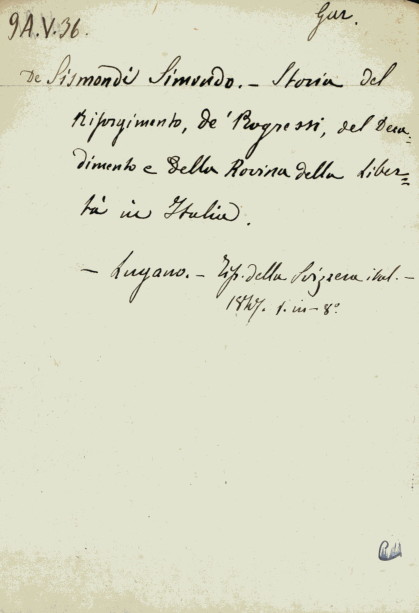 9A.V.36.
Gar.
De Sismondi Simondo. – Storia del
Risorgimento, de' Progressi, del Deca=
dimento e della Rovina della Liber=
tà in Italia.
– Lugano. – Tip. della Svizzera ital. –
1847. 1. in – 8°